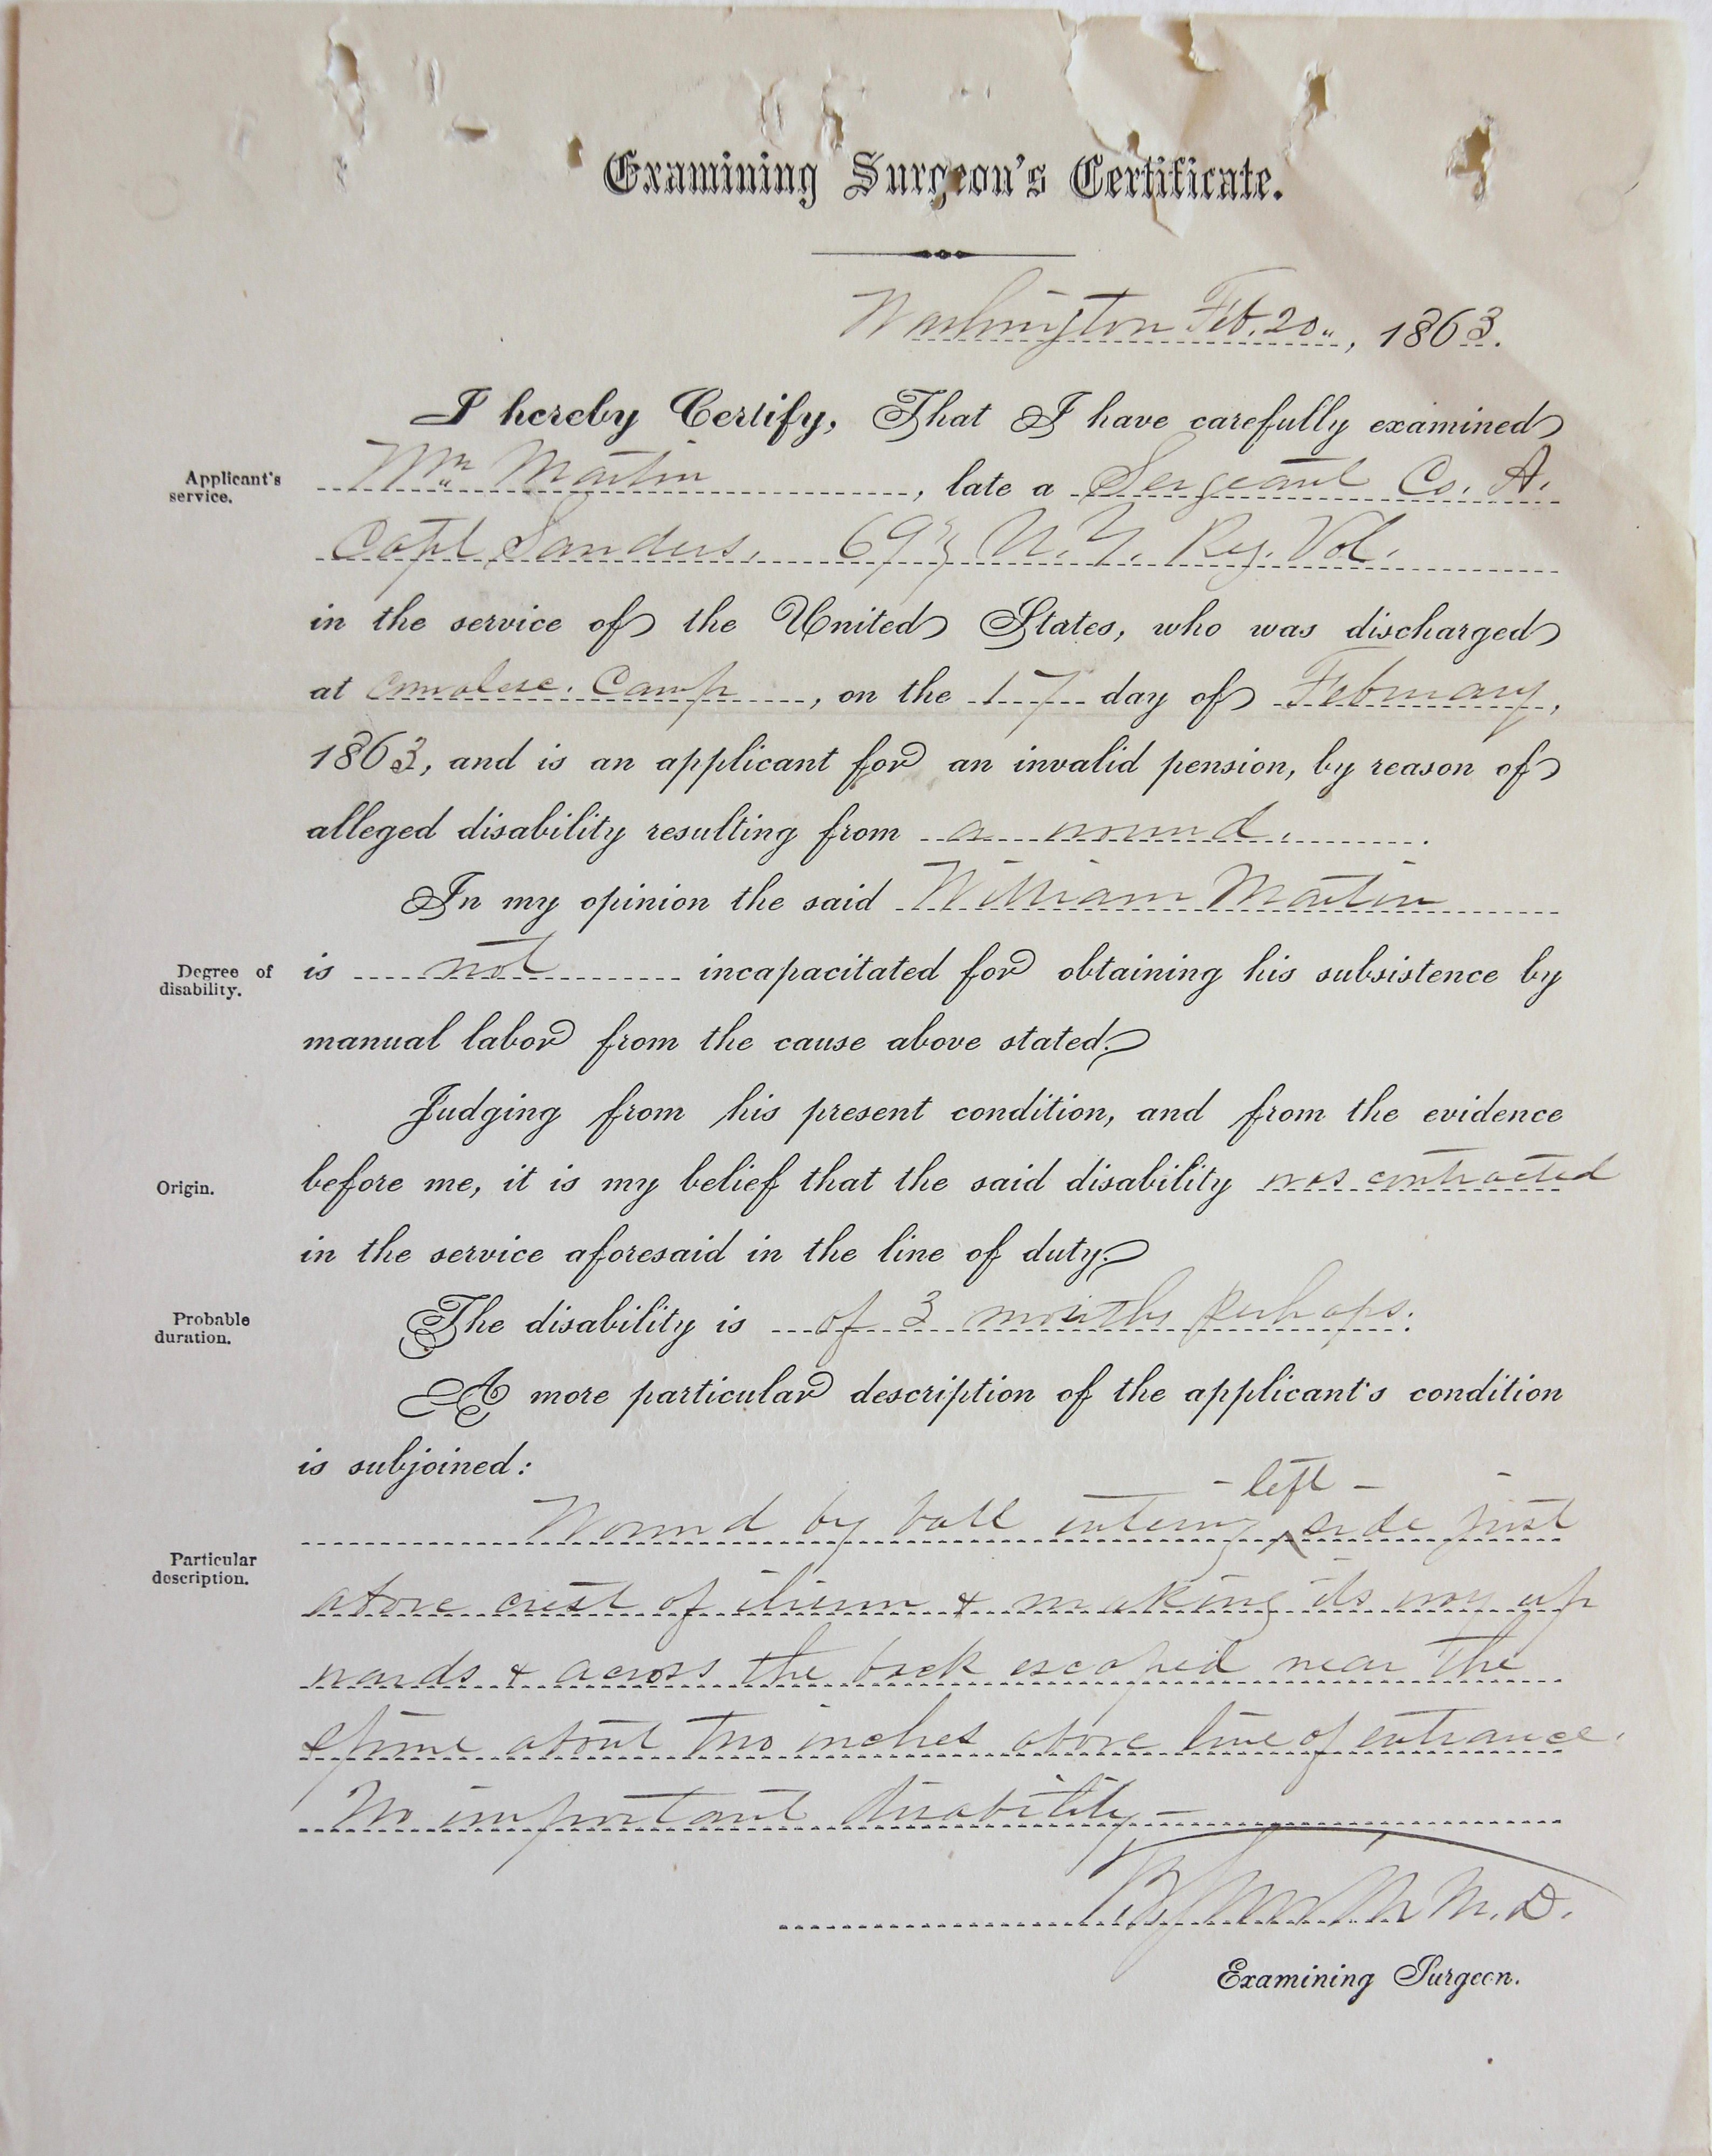 Examining Surgeon's Certificate.
Washington Feb. 20", 1863.
I hereby Certify, That I have carefully examined
Applicant's service.
Wm Martin, late a Sergeant Co. A.
Capt Sanders. 69th N.Y. Reg. Vol.
in the service of the United States, who was discharged
at convalesc. Camp, on the 17 day of February,
1863, and is an applicant for an invalid pension, by reason of
alleged disability resulting from a wound.
In my opinion the said William Martin
Degree of disability.
is not incapacitated for obtaining his subsistence by
manual labor from the cause above stated.
Judging from his present condition, and from the evidence
Origin.
before me, it is my belief that the said disability was contracted
in the service aforesaid in the line of duty.
Probable duration.
The disability is of 3 months perhaps.
A more particular description of the applicant's condition
is subjoined:
- left -
Wound by ball entering ^ side just
Particular description.
above crest of ilium & making its way up
wards & across the back escaped near the
spine about two inches above line of entrance.
No important disability -
M.D.
Examining Surgeon.